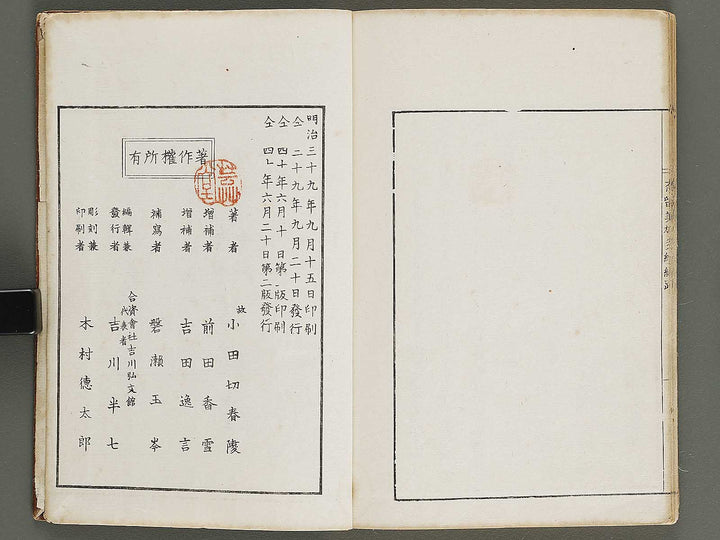 明治三十九年九月十五日印刷
仝 二十九年九月二十日發行
仝 四十年六月十日第一版印刷
仝 四十年六月二十日第二版發行
著作權所有
著者 故 小田切春陵
增補者 前田香雪
增補者 吉田逸言
補寫者 磐瀬玉岑
編輯兼發行者 合資會社吉川弘文館代表者 吉川半七
彫刻兼印刷者 木村德太郎